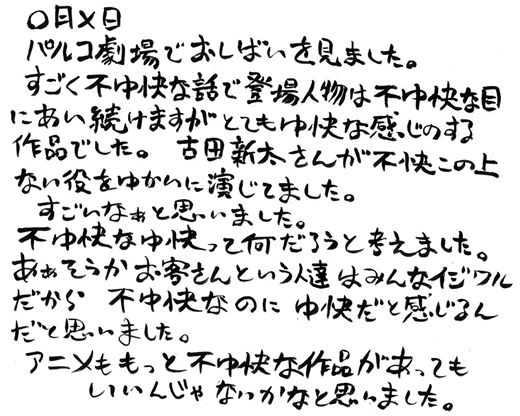 〇月×日
パルコ劇場でおしばいを見ました。
すごく不ゆ快な話で登場人物は不ゆ快な目
にあい続けますがとてもゆ快な感じのする
作品でした。 古田新太さんが不快この上
ない役をゆかいに演じてました。
すごいなぁと思いました。
不ゆ快なゆ快って何だろうと考えました。
あぁそうかお客さんという人達はみんなイジワル
だから 不ゆ快なのに ゆ快だと感じるん
だと思いました。
アニメももっと不ゆ快な作品があっても
いいんじゃないかなと思いました。